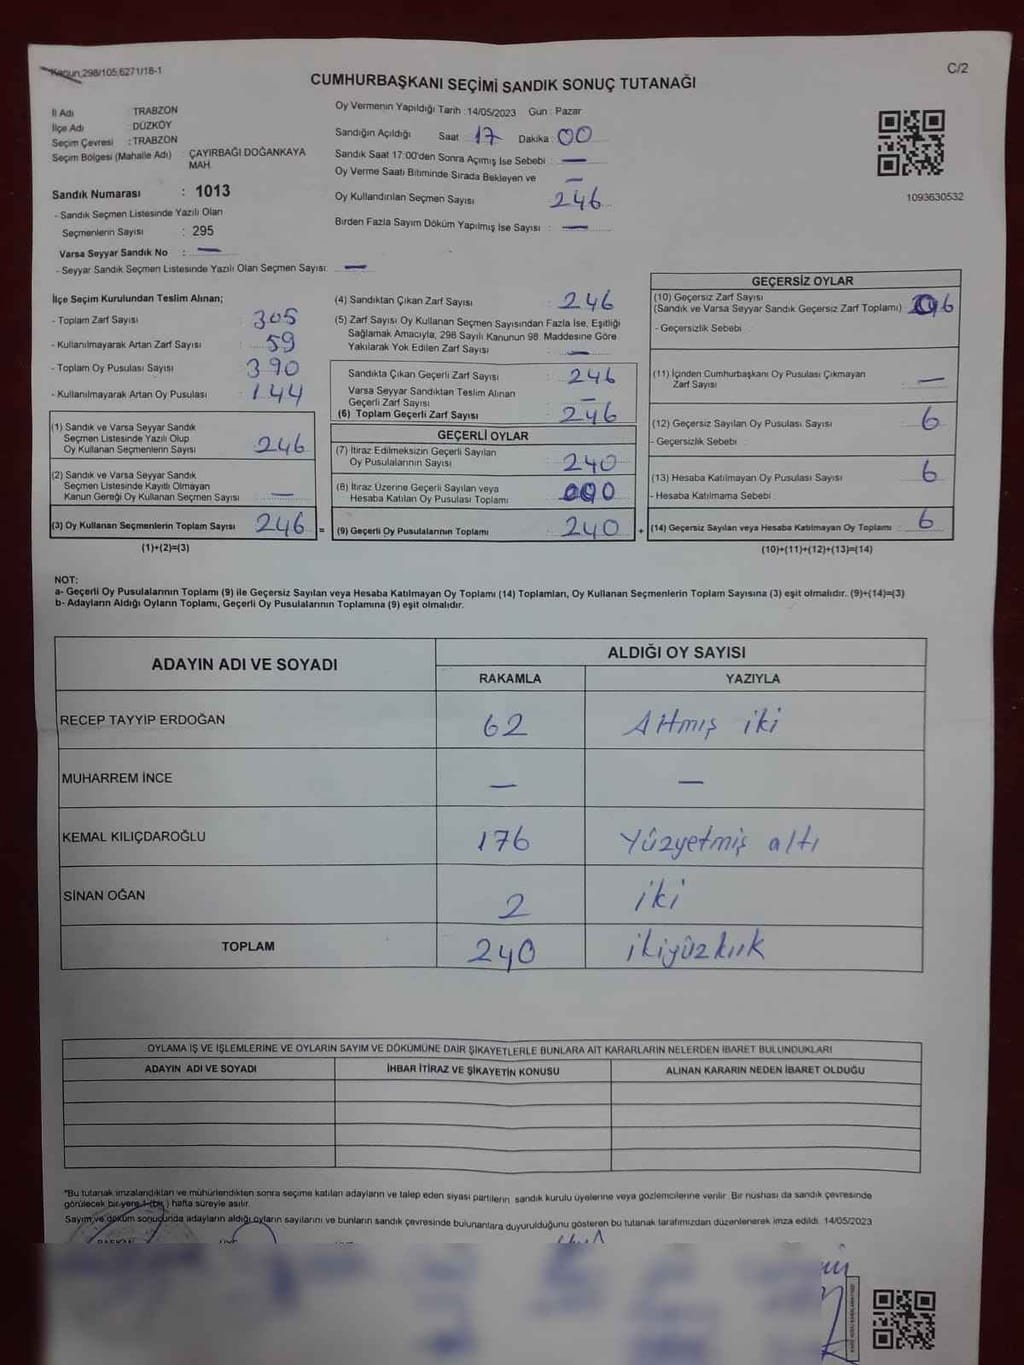 Kanun:298/105,6271/18-1
C/2
CUMHURBAŞKANI SEÇİMİ SANDIK SONUÇ TUTANAĞI
İl Adı TRABZON
İlçe Adı DÜZKÖY
Seçim Çevresi : TRABZON
Seçim Bölgesi (Mahalle Adı) ÇAYIRBAĞI DOĞANKAYA
MAH.
Sandık Numarası : 1013
- Sandık Seçmen Listesinde Yazılı Olan
Seçmenlerin Sayısı : 295
Varsa Seyyar Sandık No : —
- Seyyar Sandık Seçmen Listesinde Yazılı Olan Seçmen Sayısı: —
Oy Vermenin Yapıldığı Tarih :14/05/2023 Gün : Pazar
Sandığın Açıldığı Saat : 17 Dakika : 00
Sandık Saat 17:00'den Sonra Açımış İse Sebebi : —
Oy Verme Saati Bitiminde Sırada Bekleyen ve —
Oy Kullandırılan Seçmen Sayısı 246
Birden Fazla Sayım Döküm Yapılmış İse Sayısı : —
1093630532
İlçe Seçim Kurulundan Teslim Alınan;
- Toplam Zarf Sayısı : 305
- Kullanılmayarak Artan Zarf Sayısı : 59
- Toplam Oy Pusulası Sayısı : 390
- Kullanılmayarak Artan Oy Pusulası : 144
(1) Sandık ve Varsa Seyyar Sandık
Seçmen Listesinde Yazılı Olup
Oy Kullanan Seçmenlerin Sayısı : 246
(2) Sandık ve Varsa Seyyar Sandık
Seçmen Listesinde Kayıtlı Olmayan
Kanun Gereği Oy Kullanan Seçmen Sayısı : —
(3) Oy Kullanan Seçmenlerin Toplam Sayısı : 246 =
(1)+(2)=(3)
(4) Sandıktan Çıkan Zarf Sayısı : 246
(5) Zarf Sayısı Oy Kullanan Seçmen Sayısından Fazla İse, Eşitliği
Sağlamak Amacıyla, 298 Sayılı Kanunun 98. Maddesine Göre
Yakılarak Yok Edilen Zarf Sayısı : —
Sandıkta Çıkan Geçerli Zarf Sayısı : 246
Varsa Seyyar Sandıktan Teslim Alınan
Geçerli Zarf Sayısı : —
(6) Toplam Geçerli Zarf Sayısı : 246
GEÇERLİ OYLAR
(7) İtiraz Edilmeksizin Geçerli Sayılan
Oy Pusulalarının Sayısı : 240
(8) İtiraz Üzerine Geçerli Sayılan veya
Hesaba Katılan Oy Pusulası Toplamı : 000
(9) Geçerli Oy Pusulalarının Toplamı : 240 +
GEÇERSİZ OYLAR
(10) Geçersiz Zarf Sayısı
(Sandık ve Varsa Seyyar Sandık Geçersiz Zarf Toplamı)
- Geçersizlik Sebebi
(11) İçinden Cumhurbaşkanı Oy Pusulası Çıkmayan
Zarf Sayısı : —
(12) Geçersiz Sayılan Oy Pusulası Sayısı : 6
- Geçersizlik Sebebi
(13) Hesaba Katılmayan Oy Pusulası Sayısı : 6
- Hesaba Katılmama Sebebi
(14) Geçersiz Sayılan veya Hesaba Katılmayan Oy Toplamı : 6
(10)+(11)+(12)+(13)=(14)
NOT:
a- Geçerli Oy Pusulalarının Toplamı (9) ile Geçersiz Sayılan veya Hesaba Katılmayan Oy Toplamı (14) Toplamları, Oy Kullanan Seçmenlerin Toplam Sayısına (3) eşit olmalıdır. (9)+(14)=(3)
b- Adayların Aldığı Oyların Toplamı, Geçerli Oy Pusulalarının Toplamına (9) eşit olmalıdır.
ADAYIN ADI VE SOYADI ALDIĞI OY SAYISI
RAKAMLA YAZIYLA
RECEP TAYYİP ERDOĞAN 62 Altmış iki
MUHARREM İNCE — —
KEMAL KILIÇDAROĞLU 176 Yüzyetmiş altı
SİNAN OĞAN 2 iki
TOPLAM 240 ikiyüzkırk
OYLAMA İŞ VE İŞLEMLERİNE VE OYLARIN SAYIM VE DÖKÜMÜNE DAİR ŞİKAYETLERLE BUNLARA AİT KARARLARIN NELERDEN İBARET BULUNDUKLARI
ADAYIN ADI VE SOYADI İHBAR İTİRAZ VE ŞİKAYETİN KONUSU ALINAN KARARIN NEDEN İBARET OLDUĞU
*Bu tutanak imzalandıktan ve mühürlendikten sonra seçime katılan adayların ve talep eden siyasi partilerin sandık kurulu üyelerine veya gözlemcilerine verilir. Bir nüshası da sandık çevresinde
görülecek bir yere 1 (bir) hafta süreyle asılır.
Sayım ve döküm sonucunda adayların aldığı oyların sayılarını ve bunların sandık çevresinde bulunanlara duyurulduğunu gösteren bu tutanak tarafımızdan düzenlenerek imza edildi. 14/05/2023